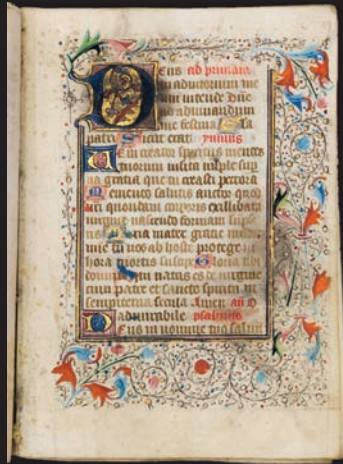 Eus ad primam
in adiutorium me
um intende Dne
ad adiuvandum
me festina Gla
patri Sicut erat ymnus
Eni creator spiritus mentes
tuorum visita imple sup
na gratia que tu creasti pectora
Memento salutis auctor quod
nostri quondam corporis ex illibata
virgine nascendo formam sumpse
ris Maria mater gratie mater
tu nos ab hoste protege
hora mortis suscipe Gloria tibi
domine qui natus es de virgine
cum patre et sancto spiritu in
sempiterna secula Amen an O
admirabile psalmus
Eus in nomine tuo salvum